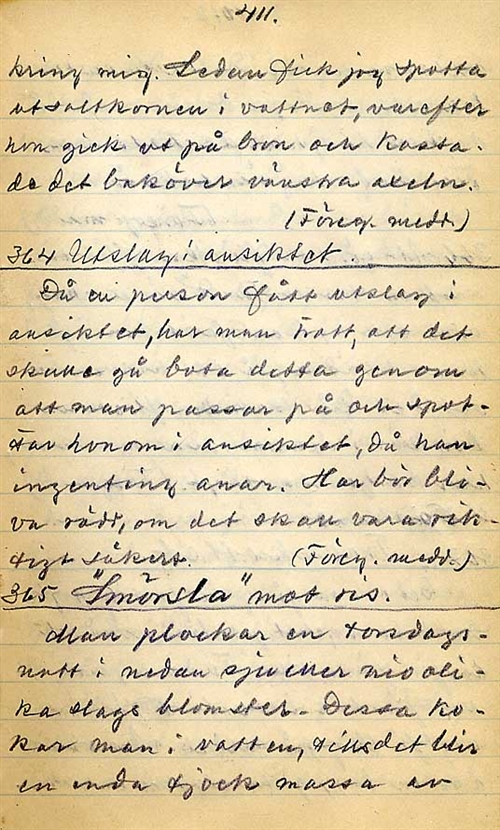 411.
kring mig. Sedan fick jag spotta
ut saltkornen i vattnet, varefter
hon gick ut på bron och kasta-
de det baköver vänstra axeln.
(Föreg. medd.)
364 Utslag i ansiktet
Då en person fått utslag i
ansiktet, har man trott, att det
skulle gå bota detta genom
att man passar på och spot-
tar honom i ansiktet, då han
ingenting anar. Han bör bli-
va rädd, om det skall vara rik-
tigt säkert. (Föreg. medd.)
365 "Smörsla" mot ris.
Man plockar en torsdags-
natt i nedan sju eller nio oli-
ka slags blomster. Dessa ko-
kar man i vatten, tills det blir
en enda tjock massa av